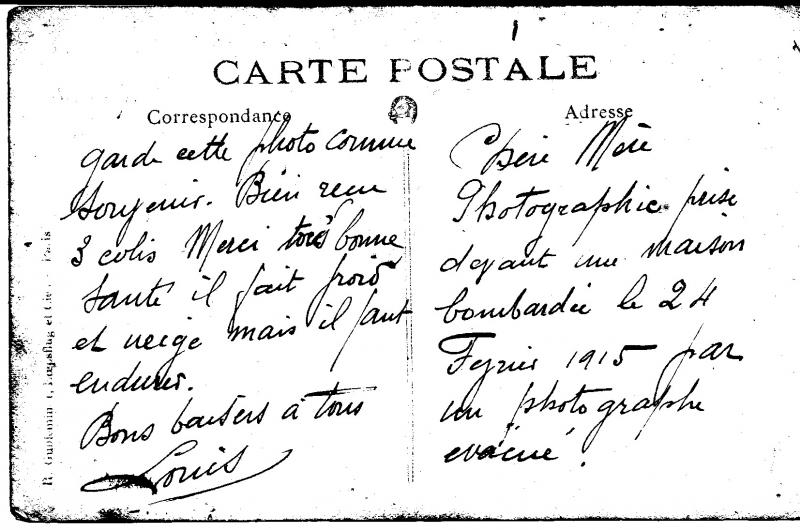 CARTE POSTALE
Correspondance
Adresse
garde cette photo comme
souvenir. Bien reçu
3 colis Merci très bonne
santé il fait froid
et neige mais il faut
endurer.
Bons baisers à tous
Louis
Chère Mère
Photographie prise
devant une maison
bombardée le 24
Fevrier 1915 par
un photographe
évacué.
et Cie. Paris